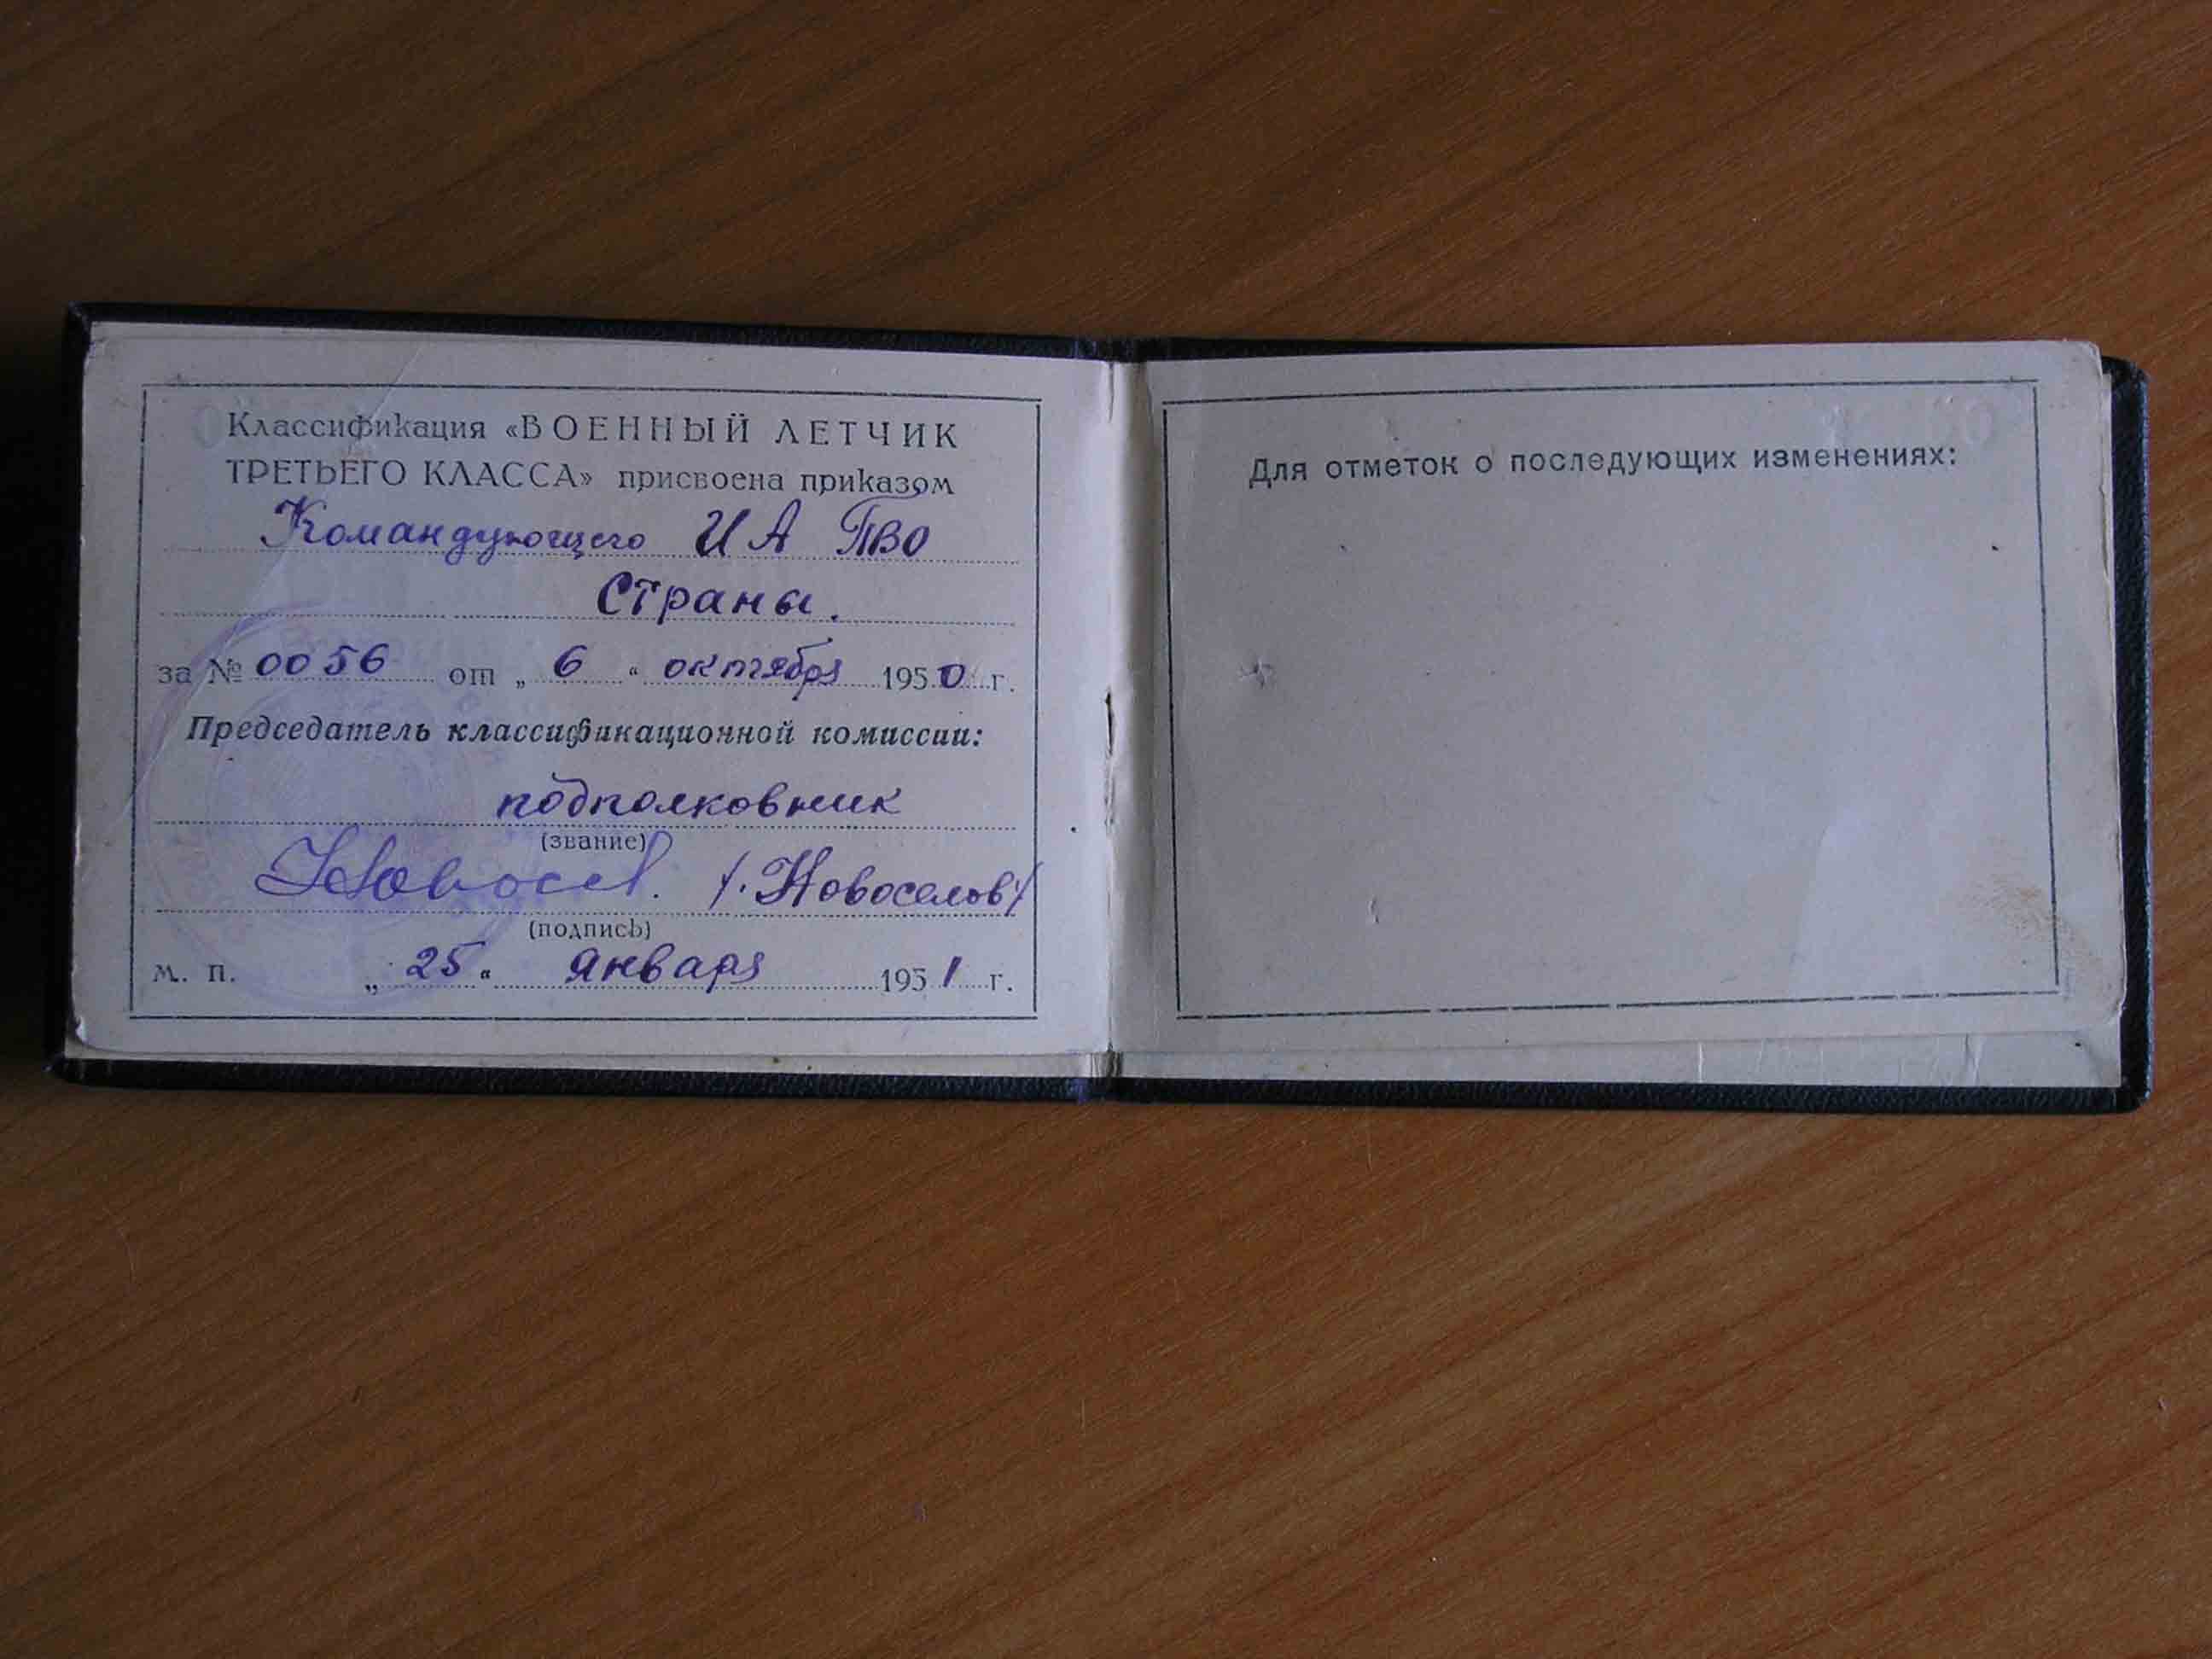 Классификация «ВОЕННЫЙ ЛЕТЧИК
ТРЕТЬЕГО КЛАССА» присвоена приказом
Командующего ИА ПВО
Страны.
за № 0056 от „ 6 “ октября 1950 г.
Председатель классификационной комиссии:
подполковник
(звание)
/. Новоселов/
(подпись)
М. П. „ 25 “ января 1951 г.
Для отметок о последующих изменениях: